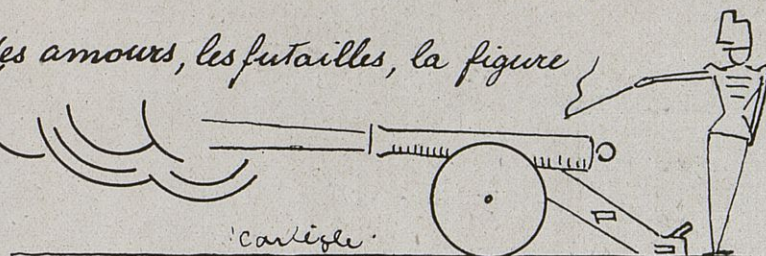 les amours, les futailles, la figure
Carlègle